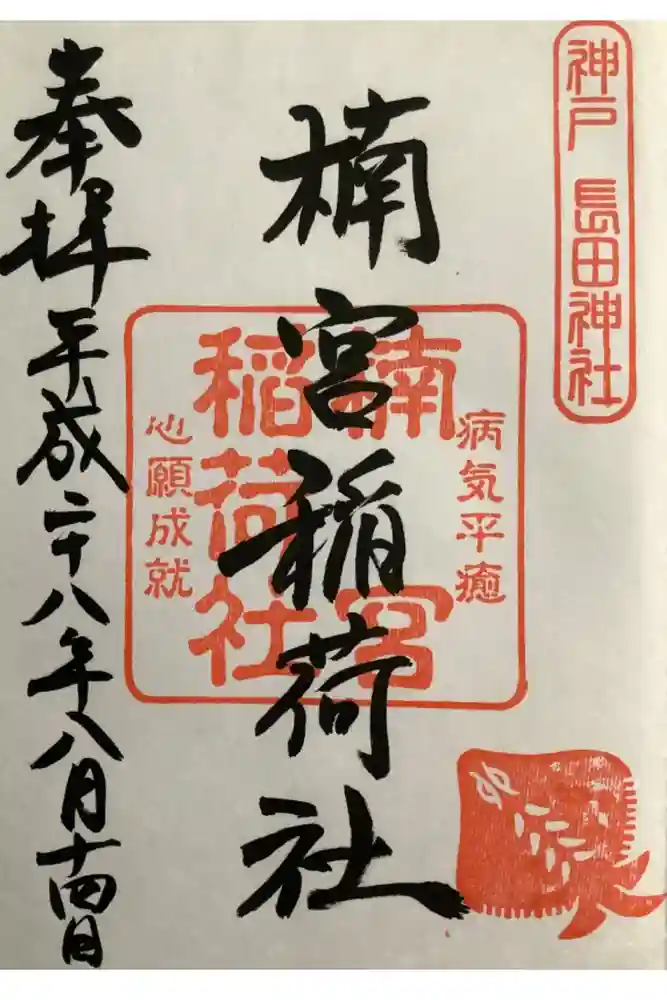 神戸 長田神社
楠宮稲荷社
病気平癒
楠宮
稲荷社
心願成就
奉拝 平成二十八年八月十四日